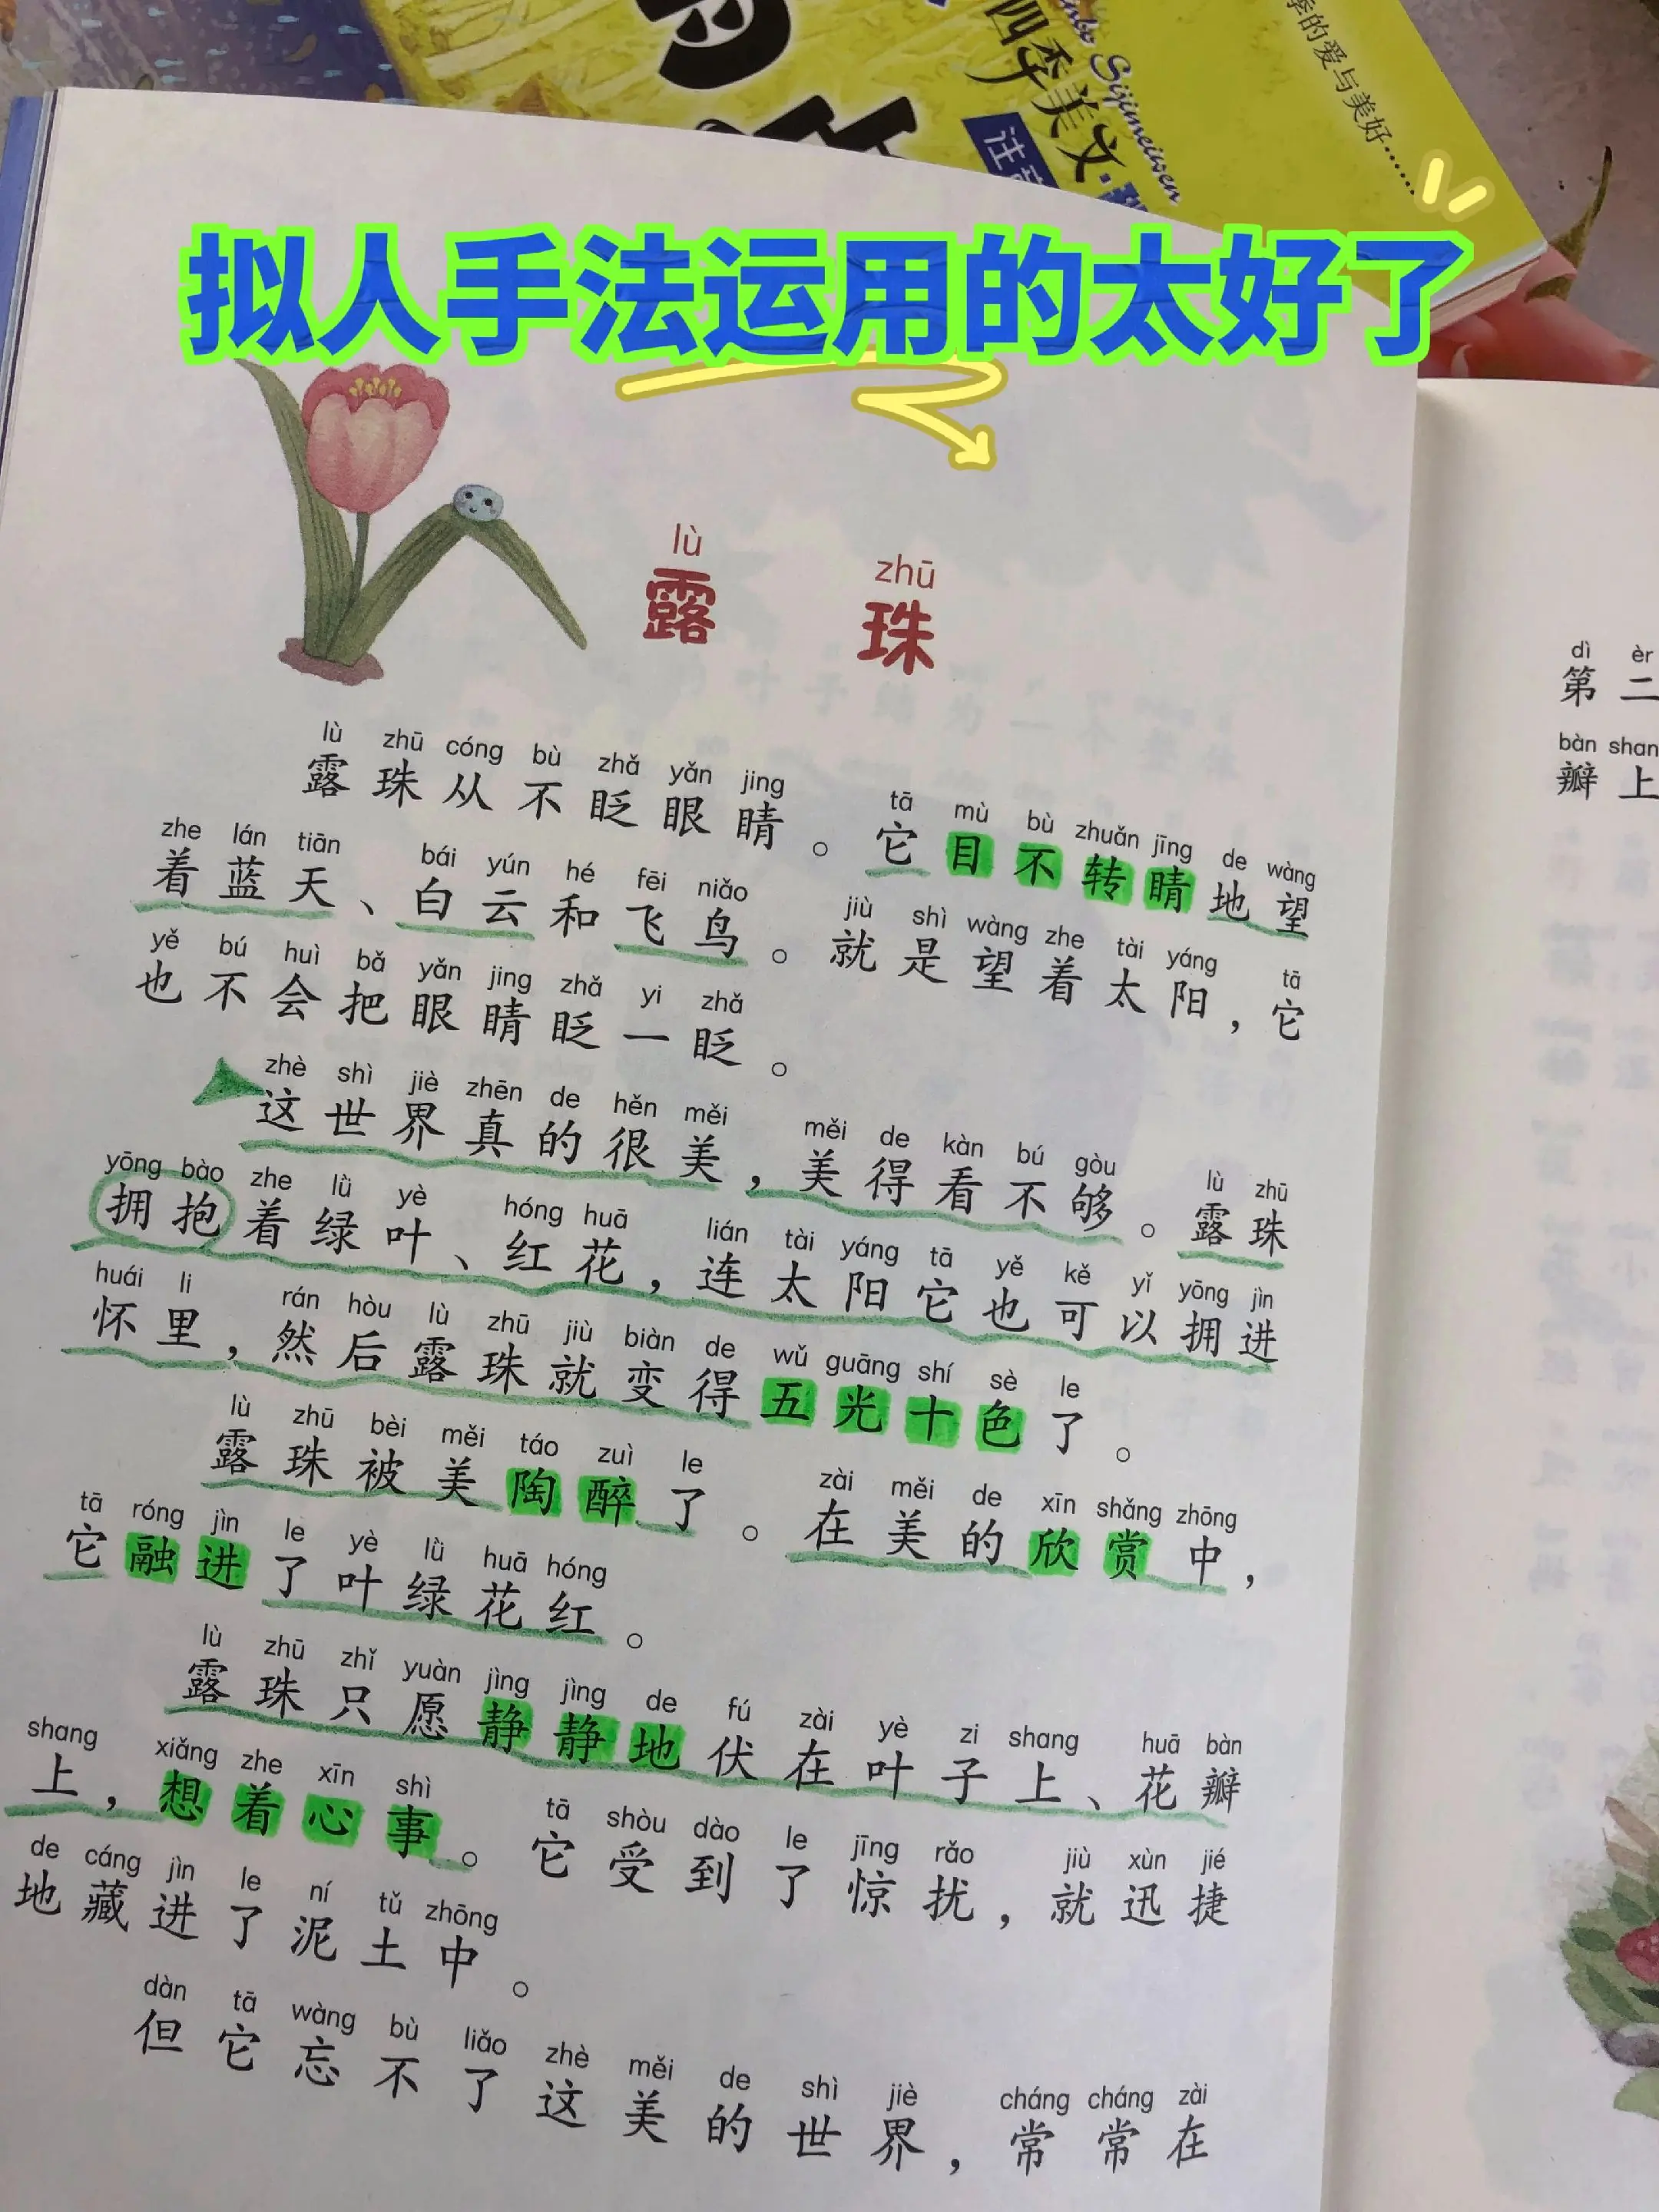 四季美文·
Sijimeiwen
季的爱与美好……
拟人手法运用的太好了
lù zhū
露珠
lù zhū cóng bù zhǎ yǎn jing tā mù bù zhuǎn jīng de wàng
露珠从不眨眼睛。它目不转睛地望
zhe lán tiān bái yún hé fēi niǎo jiù shì wàng zhe tài yáng tā
着蓝天、白云和飞鸟。就是望着太阳，它
yě bú huì bǎ yǎn jing zhǎ yi zhǎ
也不会把眼睛眨一眨。
zhè shì jiè zhēn de hěn měi měi de kàn bú gòu lù zhū
这世界真的很美，美得看不够。露珠
yōng bào zhe lǜ yè hóng huā lián tài yáng tā yě kě yǐ yōng jìn
拥抱着绿叶、红花，连太阳它也可以拥进
huái li rán hòu lù zhū jiù biàn de wǔ guāng shí sè le
怀里，然后露珠就变得五光十色了。
lù zhū bèi měi táo zuì le zài měi de xīn shǎng zhōng
露珠被美陶醉了。在美的欣赏中，
tā róng jìn le yè lǜ huā hóng
它融进了叶绿花红。
lù zhū zhǐ yuàn jìng jìng de fú zài yè zi shang huā bàn
露珠只愿静静地伏在叶子上、花瓣
shang xiǎng zhe xīn shì tā shòu dào le jīng rǎo jiù xùn jié
上，想着心事。它受到了惊扰，就迅捷
de cáng jìn le ní tǔ zhōng
地藏进了泥土中。
dàn tā wàng bù liǎo zhè měi de shì jiè cháng cháng zài
但它忘不了这美的世界，常常在
dì èr
第二
bàn shan
瓣上